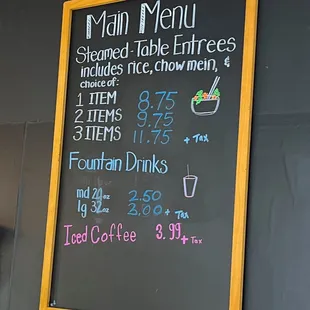 Main Menu
Steamed-Table Entrees
includes rice, chow mein, &
choice of:
1 ITEM 8.75
2 ITEMS 9.75
3 ITEMS 11.75 + Tax
Fountain Drinks
md 24oz 2.50
lg 32oz 3.00 + Tax
Iced Coffee 3.99 + Tax